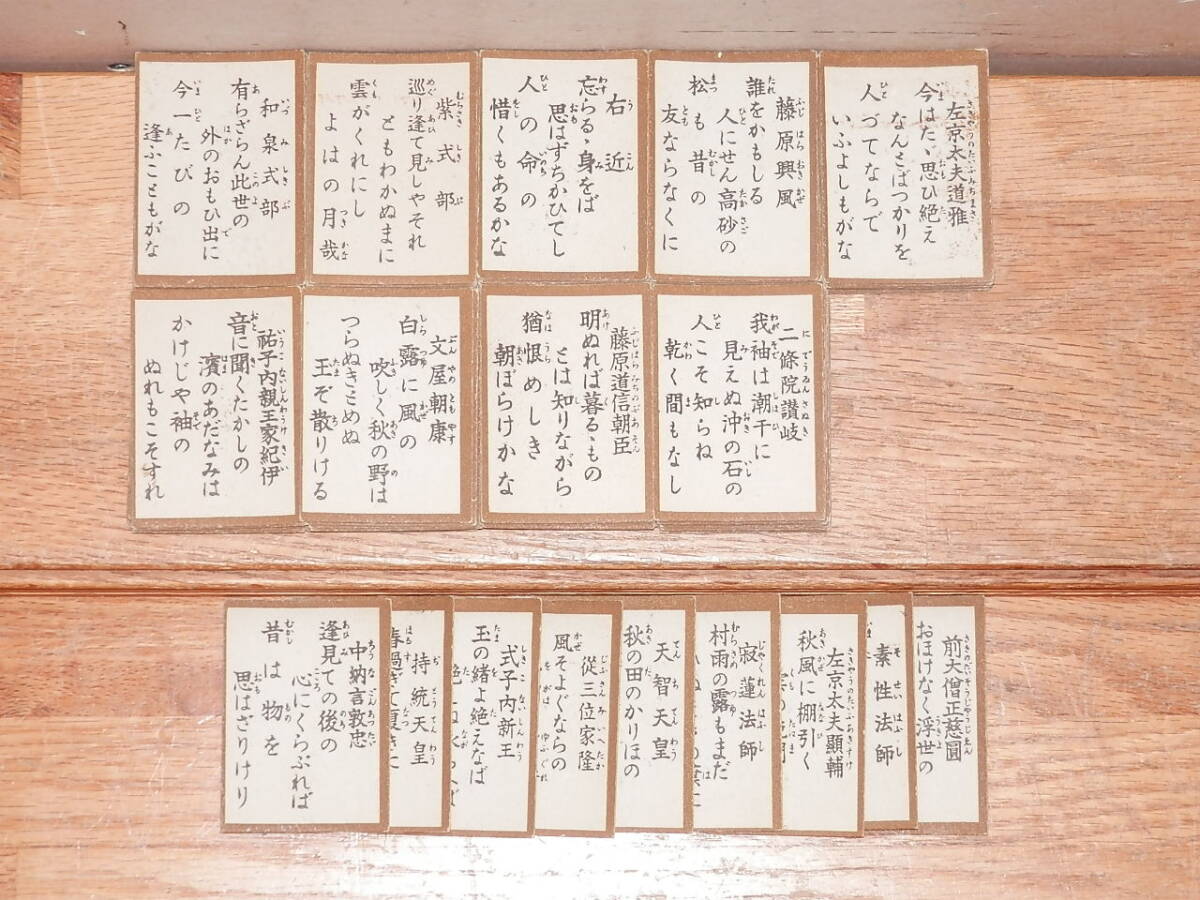 左京太夫道雅
今はたゞ思ひ絶え
なんとばつかりを
人づてならで
いふよしもがな
藤原興風
誰をかもしる
人にせん高砂の
松も昔の
友ならなくに
右近
忘らるゝ身をば
思はずちかひてし
人の命の
惜くもあるかな
紫式部
巡り逢て見しやそれ
ともわかぬまに
雲がくれにし
よはの月哉
和泉式部
有らざらん此世の
外のおもひ出に
今一たびの
逢ふこともがな
二條院讃岐
我袖は潮干に
見えぬ沖の石の
人こそ知らね
乾く間もなし
藤原道信朝臣
明ぬれば暮るゝもの
とは知りながら
猶恨めしき
朝ぼらけかな
文屋朝康
白露に風の
吹しく秋の野は
つらぬきとめぬ
玉ぞ散りける
祐子内親王家紀伊
音に聞くたかしの
濱のあだなみは
かけじや袖の
ぬれもこそすれ
前大僧正慈圓
おほけなく浮世の
素性法師
左京太夫顯輔
秋風に棚引く
寂蓮法師
村雨の露もまだ
天智天皇
秋の田のかりほの
從三位家隆
風そよぐならの
式子内新王
玉の緒よ絶えなば
持統天皇
春過ぎて夏きに
中納言敦忠
逢見ての後の
心にくらぶれば
昔は物を
思はざりけり